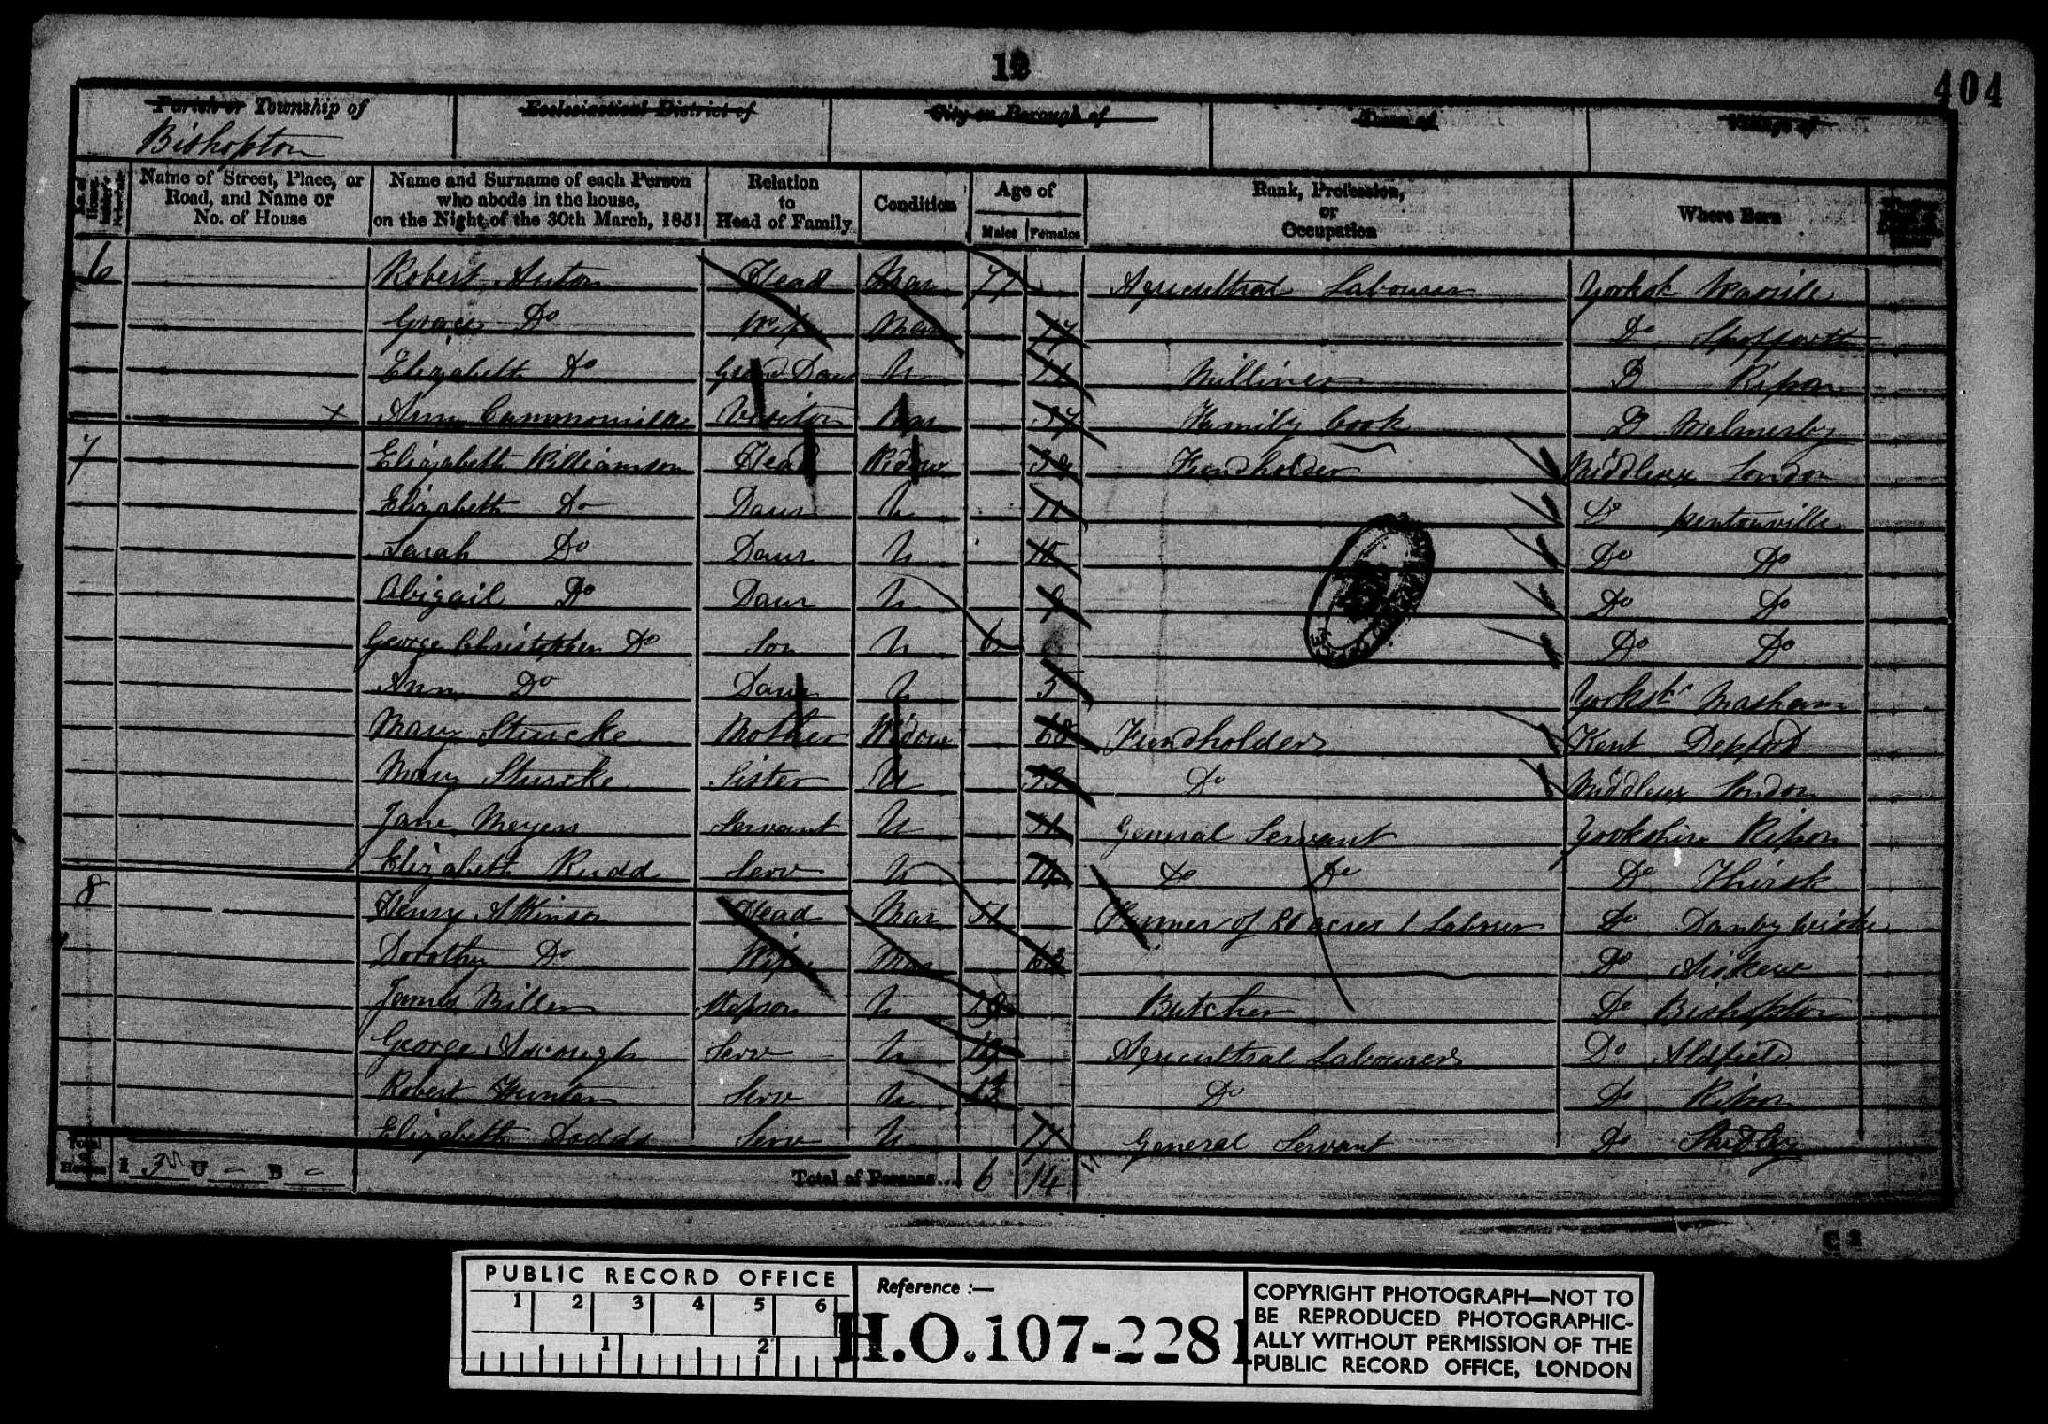 18
404
Parish or Township of
Bishopton
Ecclesiastical District of
City or Borough of
Town of
Village of
No. of House-holder's Schedule
Name of Street, Place, or Road, and Name or No. of House
Name and Surname of each Person who abode in the house, on the Night of the 30th March, 1851
Relation to Head of Family
Condition
Age of
Males
Females
Rank, Profession, or Occupation
Where Born
6 Robert Head Mar 77 Agricultural Labourer Yorksh
Grace Do Wife Mar 77 Do Spofforth
Elizabeth Do Grand Daur U Milliner D Ripon
Ann Visitor 37 Family Cook D Melmerby
7 Elizabeth Williamson Head Widow Fundholder Middlesex London
Elizabeth Do Daur U 11 Do Pentonville
Sarah Do Daur U 10 Do Do
Abigail Do Daur U Do Do
George Christopher Do Son U 6 Do Do
Ann Do Daur U Yorksh Masham
Mary Sturcke Mother Widow 68 Fundholder Kent Deptford
Mary Sturcke Sister U Do Middlesex London
Jane Meyers Servant U General Servant Yorkshire Ripon
Elizabeth Rudd Serv U 14 Do Do Do Thirsk
8 Henry Atkinson Head Mar 51 Farmer of acres 1 Labourer Do Danby Wiske
Dorothy Do Wife Mar 62 Do Aiskew
James Stepson U Butcher Do Bishopton
George Serv U 19 Agricultral Labourer Do Aldfield
Robert Hunter Serv U 13 Do Do Ripon
Elizabeth Dodds Serv U General Servant Do Studley
Total of Houses I 3 U - B -
Total of Persons... 6 14
C 2
PUBLIC RECORD OFFICE
1 2 3 4 5 6
1 2
Reference :—
H.O. 107-2281
COPYRIGHT PHOTOGRAPH—NOT TO
BE REPRODUCED PHOTOGRAPHIC-
ALLY WITHOUT PERMISSION OF THE
PUBLIC RECORD OFFICE, LONDON